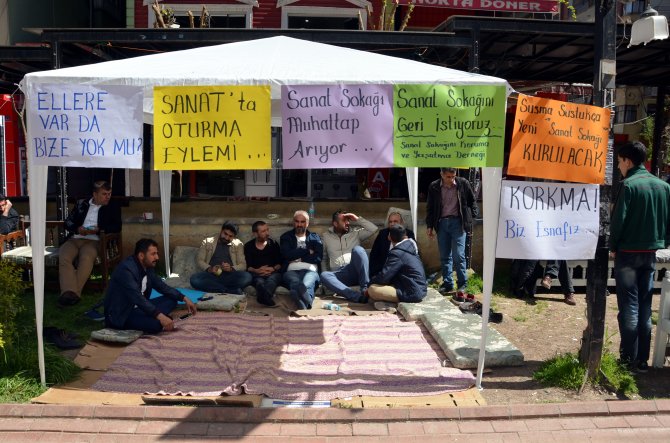 NOKTA DÖNER
ELLERE
VAR DA
BİZE YOK MU?
SANAT'ta
OTURMA
EYLEMİ ...
Sanat Sokağı
Muhattap
Arıyor...
Sanat Sokağını
Geri İstiyoruz...
Sanat Sokağını Koruma
ve Yaşatma Derneği
Susma Sustukça
Yeni "Sanat Sokağı
KURULACAK
KORKMA!
Biz Esnafız...